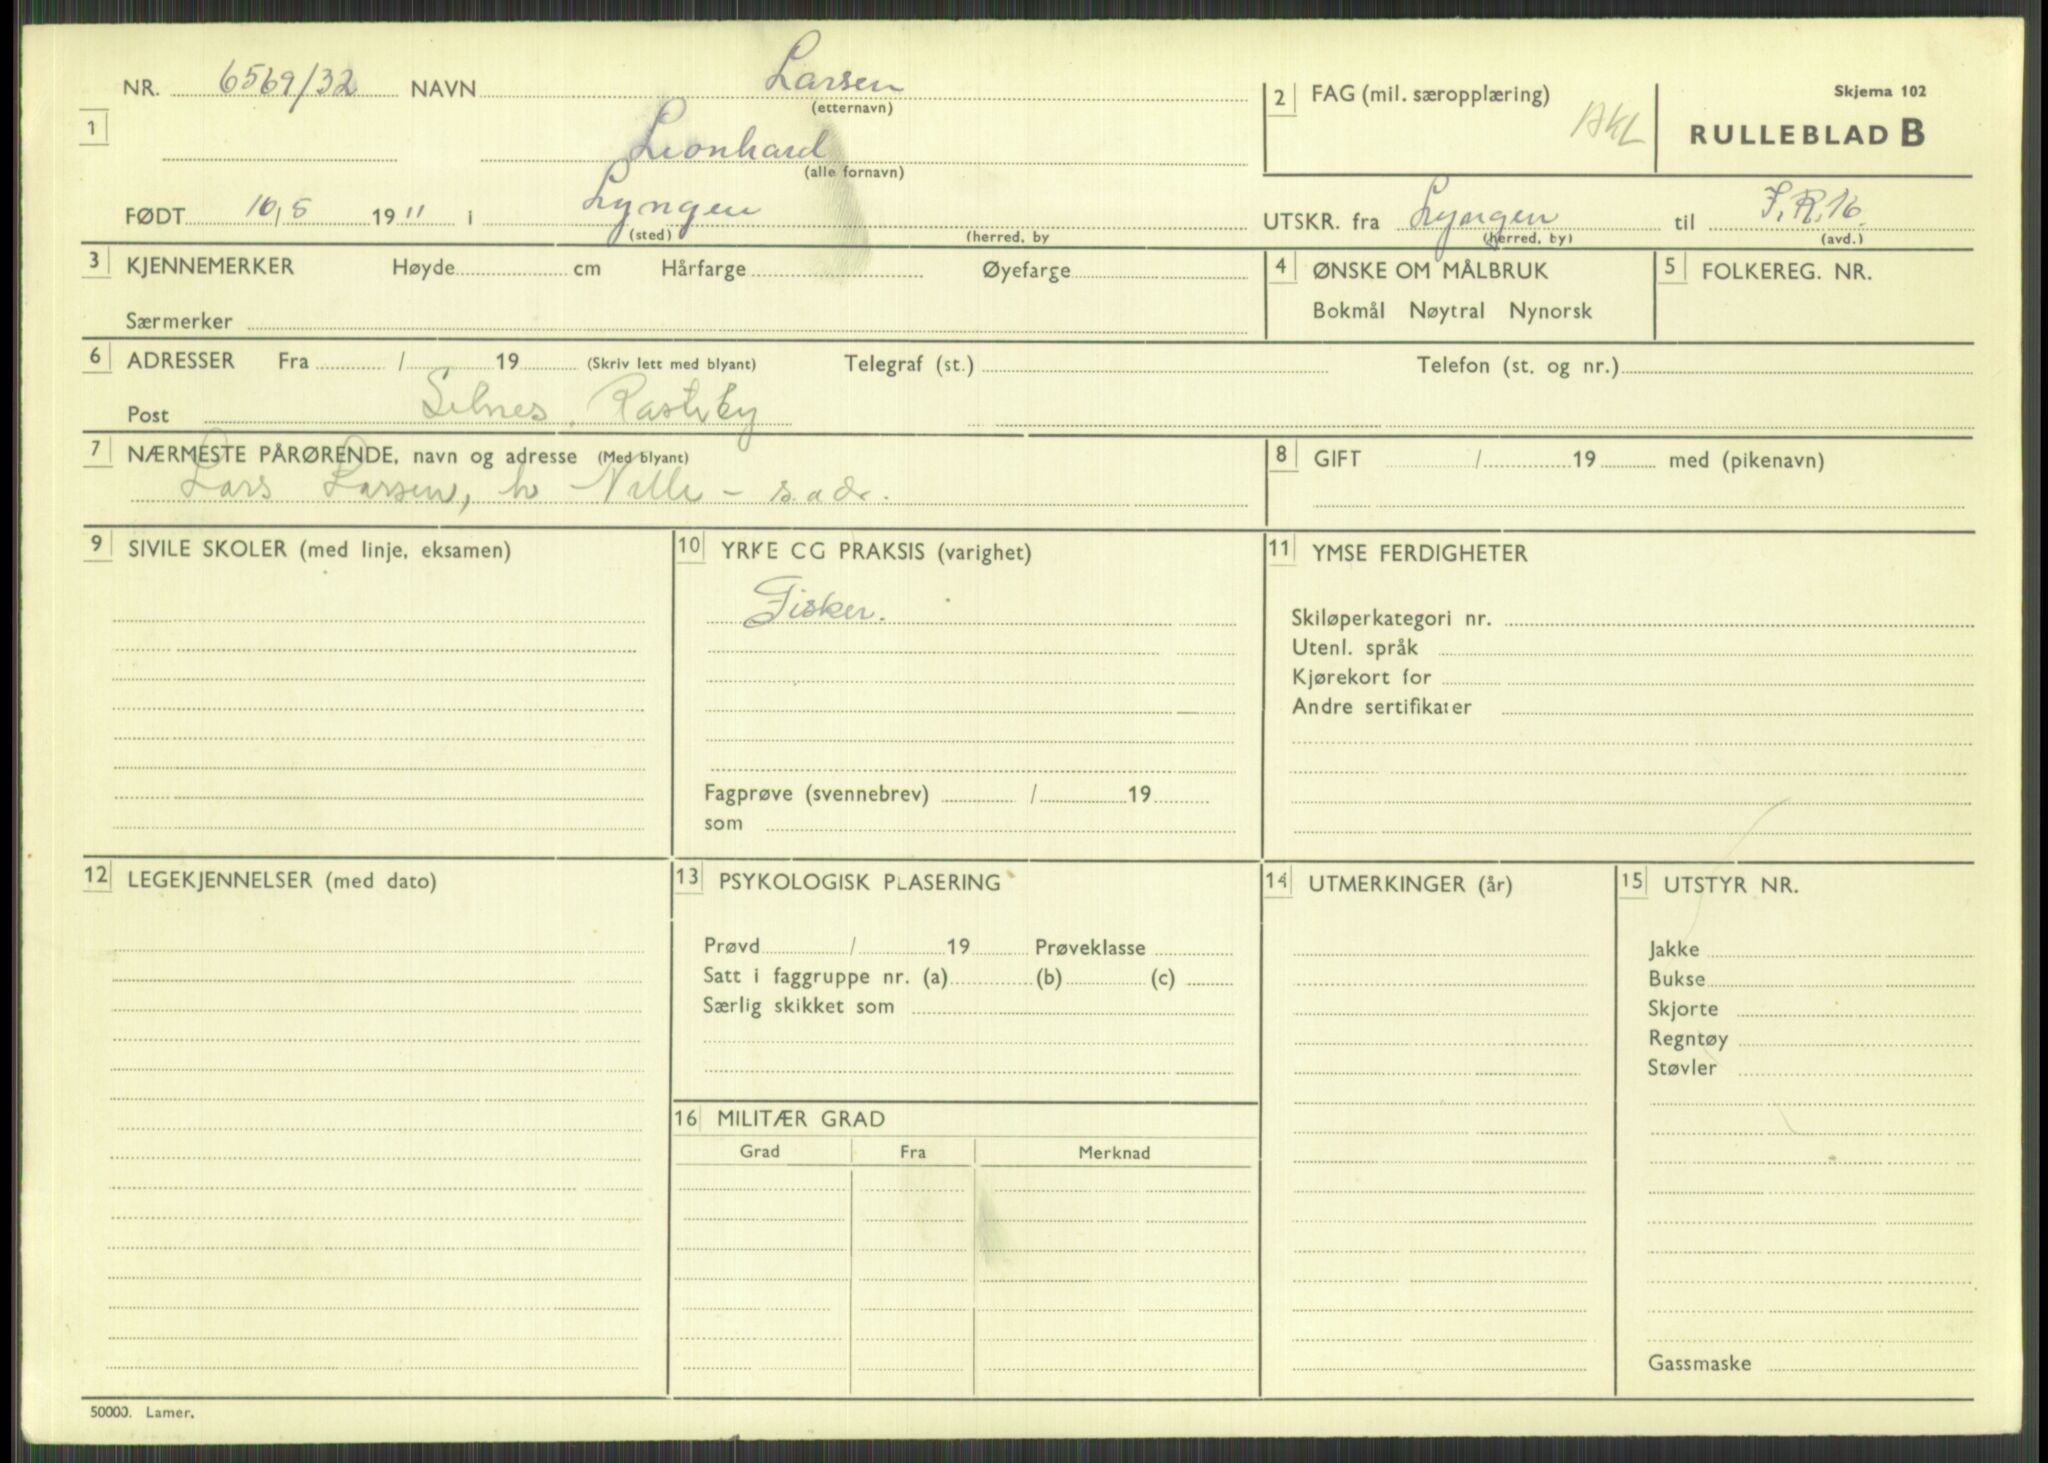 NR. 6569/32 NAVN Larsen
(etternavn)
1
Leonhard
(alle fornavn)
FØDT 10/5 1911 i Lyngen
(sted) (herred, by
2 FAG (mil. særopplæring)
Skjema 102
RULLEBLAD B
UTSKR. fra Lyngen til I.R.16.
(herred, by) (avd.)
3 KJENNEMERKER Høyde cm Hårfarge Øyefarge
Særmerker
4 ØNSKE OM MÅLBRUK
Bokmål Nøytral Nynorsk
5 FOLKEREG. NR.
6 ADRESSER Fra / 19 (Skriv lett med blyant) Telegraf (st.) Telefon (st. og nr.)
Post Selnes, Rasteby
7 NÆRMESTE PÅRØRENDE, navn og adresse (Med blyant)
Lars Larsen, h – s. adr.
8 GIFT / 19 med (pikenavn)
9 SIVILE SKOLER (med linje, eksamen)
10 YRKE CG PRAKSIS (varighet)
Fisker.
Fagprøve (svennebrev) / 19
som
11 YMSE FERDIGHETER
Skiløperkategori nr.
Utenl. språk
Kjørekort for
Andre sertifikater
12 LEGEKJENNELSER (med dato)
13 PSYKOLOGISK PLASERING
Prøvd / 19 Prøveklasse
Satt i faggruppe nr. (a) (b) (c)
Særlig skikket som
14 UTMERKINGER (år)
15 UTSTYR NR.
Jakke
Bukse
Skjorte
Regntøy
Støvler
Gassmaske
16 MILITÆR GRAD
Grad Fra Merknad
50000. Lamer.